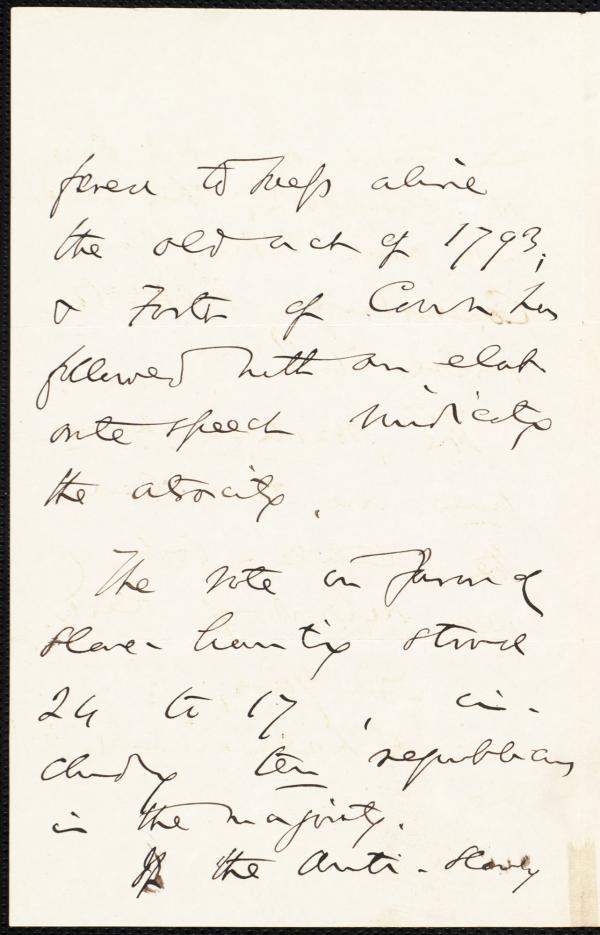 to keep alive
the old act of 1793,
& Foster of Conn. has
followed with an elab
orate speech vindicating
the atrocity.
The vote in favor of
slave-hunting stood
24 to 17, in-
cluding ten republicans
in the majority.
If the Anti-Slavery